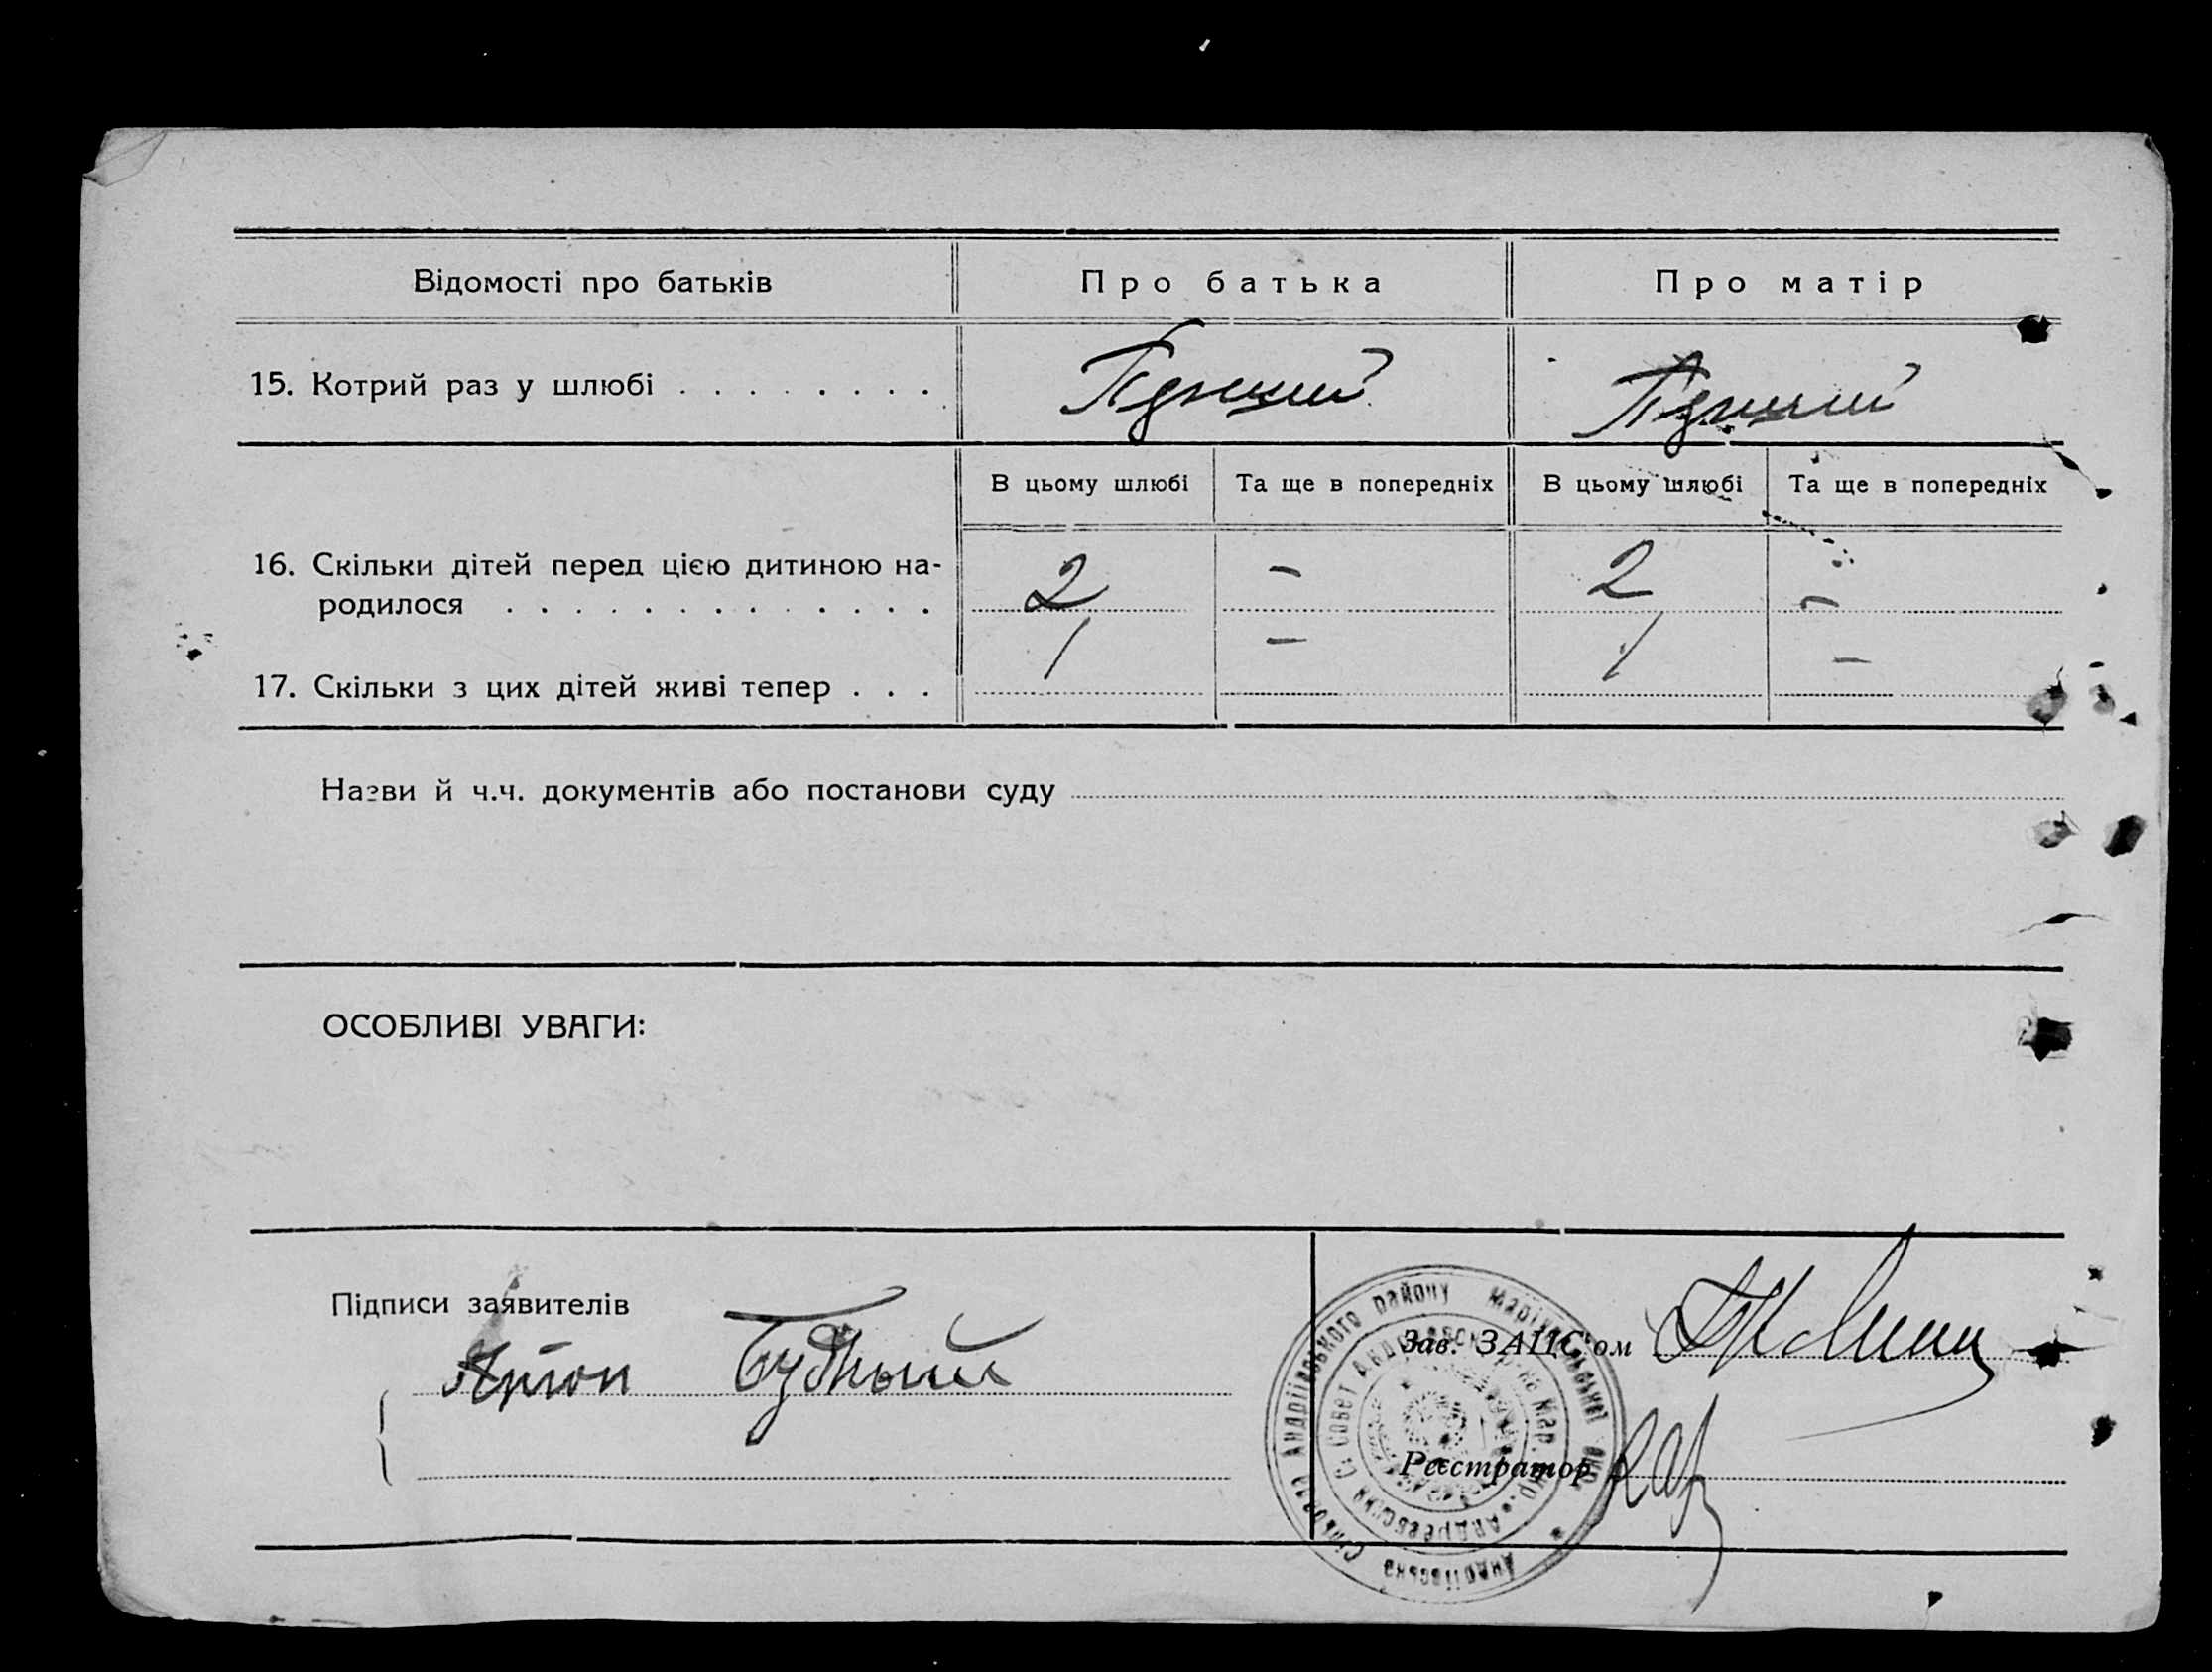 Відомості про батьків
Про батька
Про матір
15. Котрий раз у шлюбі . . . . . . . .
В цьому шлюбі
Та ще в попередніх
В цьому шлюбі
Та ще в попередніх
16. Скільки дітей перед цією дитиною на-
родилося . . . . . . . . . . . . .
2
-
2
-
17. Скільки з цих дітей живі тепер . . .
1
-
1
-
Назви й ч.ч. документів або постанови суду
ОСОБЛИВІ УВАГИ:
Підписи заявителів
Будный
Зав. ЗАЦСом
Реєстратор
Андріївська Сільрада Андріївського району Маріупольської окр.